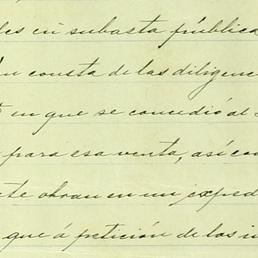 les en subasta pública
ún consta de las diligenc
en que se concedió al
para esa venta, así con
te obran en un exped
que á petición de los in